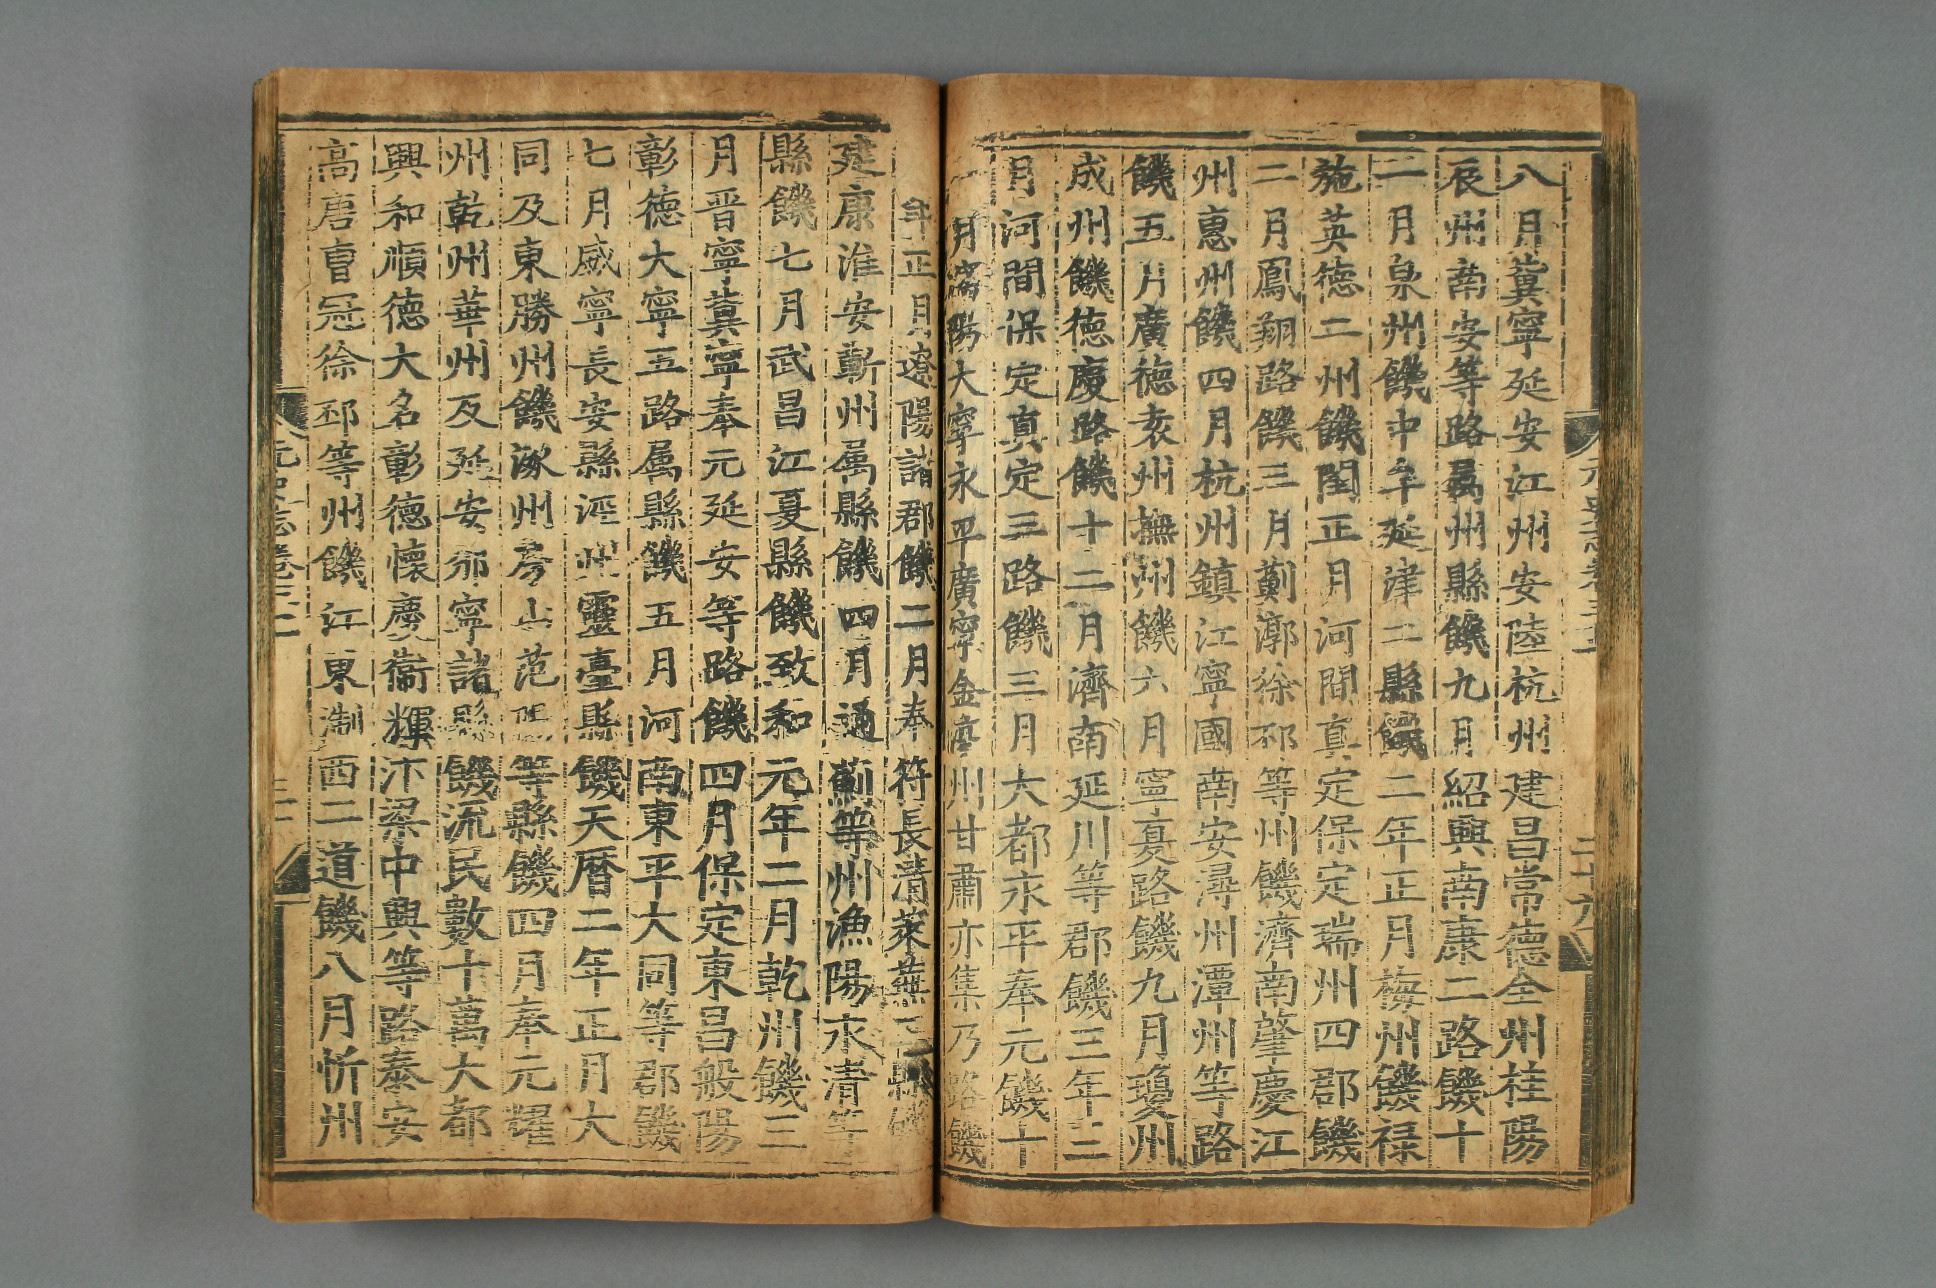 八月冀寧延安江州安陸杭州建昌常德全州桂陽
辰州南安等路屬州縣饑九月紹興南康二路饑十
二月泉州饑中牟延津二縣饑二年正月梅州饑祿
施英德二州饑閏正月河間真定保定瑞州四郡饑
二月鳳翔路饑三月薊漷徐邳等州饑濟南肇慶江
州惠州饑四月杭州鎮江寧國南安潯州潭州等路
饑五月廣德袁州撫州饑六月寧夏路饑九月瓊州
成州饑德慶路饑十二月濟南延川等郡饑三年二
月河間保定真定三路饑三月大都永平奉元饑十
一月瀋陽大寧永平廣寧金復州甘肅亦集乃路饑
年正月遼陽諸郡饑二月奉符長清萊蕪三縣饑
建康淮安蘄州属縣饑四月通薊等州漁陽永清等
縣饑七月武昌江夏縣饑致和元年二月乾州饑三
月晋寧冀寧奉元延安等路饑四月保定東昌般陽
彰德大寧五路属縣饑五月河南東平大同等郡饑
七月威寧長安縣涇州靈臺縣饑天曆二年正月大
同及東勝州饑涿州房山范陽等縣饑四月奉元耀
州乾州華州及延安邠寧諸縣饑流民數十萬大都
興和順德大名彰德懷慶衞輝汴梁中興等路泰安
高唐曹冠徐邳等州饑江東淛西二道饑八月忻州
元史志卷三上